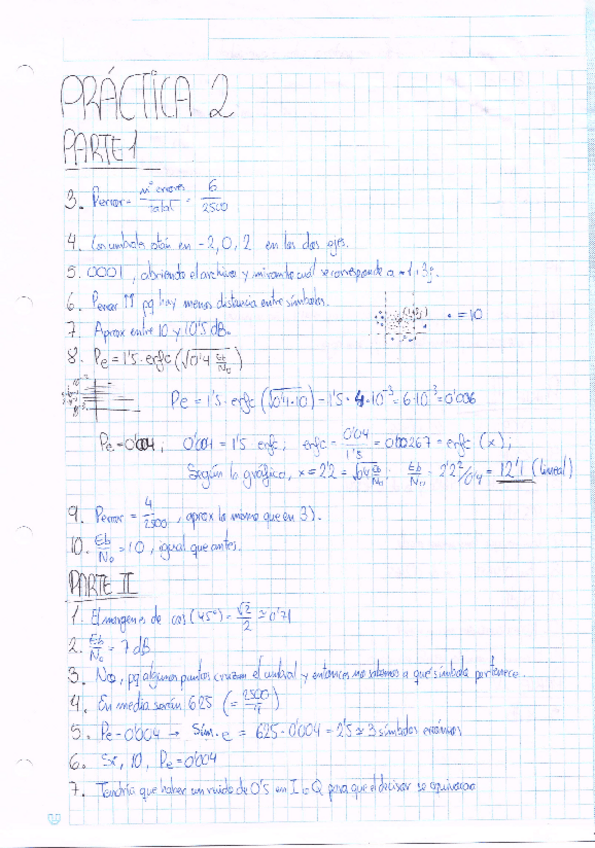 PRÁCTICA 2
PARTE 1
3. Perror = nº errores / total = 6 / 2500
4. Los umbrales están en -2, 0, 2 en los dos ejes.
5. 0001, abriendo el archivo y mirando cuál se corresponde a -1+3j.
6. Perror ↑↑ pq hay menos distancia entre símbolos.
• = 10
7. Aprox entre 10 y 10'5 dB.
8. Pe = 1'5 · erfc (√(0'4 Eb/N₀))
Pe = 1'5 · erfc (√(0'4·10)) = 1'5 · 4·10⁻³ = 6·10⁻³ = 0'006
Pe = 0'004; 0'004 = 1'5 erfc; erfc = 0'04 / 1'5 = 0'00267 = erfc (x);
Según la gráfica, x = 2'2 = √(0'4 Eb/N₀); Eb/N₀ = 2'2²/0'4 = 12'1 (lineal)
9. Perror = 4 / 2500, aprox lo mismo que en 3).
10. Eb/N₀ = 10, igual que antes.
PARTE II
1. El margen es de cos (45º) = √2 / 2 ≈ 0'71
2. Eb/N₀ = 7 dB
3. No, pq algunos puntos cruzan el umbral y entonces no sabemos a qué símbolo pertenece.
4. En media serán 625 (= 2500 / 4)
5. Pe = 0'004 → Sím. e = 625 · 0'004 = 2'5 ≈ 3 símbolos erróneos
6. Sí, 10, Pe = 0'004
7. Tendría que haber un ruido de 0'5 en I o Q para que el decisor se equivocara